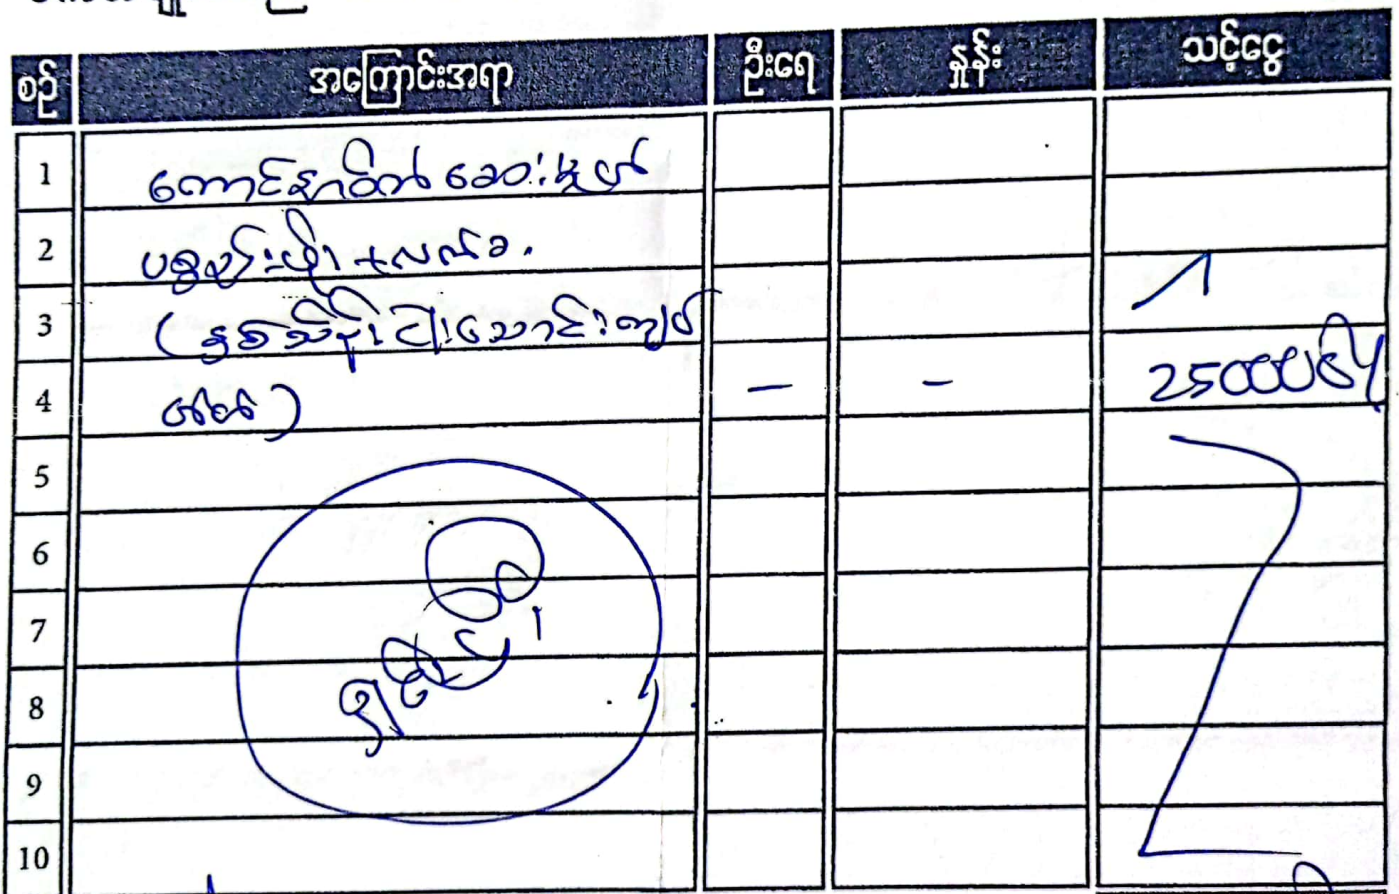 စဉ် အကြောင်းအရာ ဦးရေ နှုန်း သင့်ငွေ
1 ကောင်နာဝိတ် ဆေးမှုတ်
2 ပစ္စည်းဖိုး + လက်ခ.
3 (နှစ်သိန်းငါးသောင်းကျပ်
4 တိတိ) – – 250000ိ/
5
6
7
8
9
10